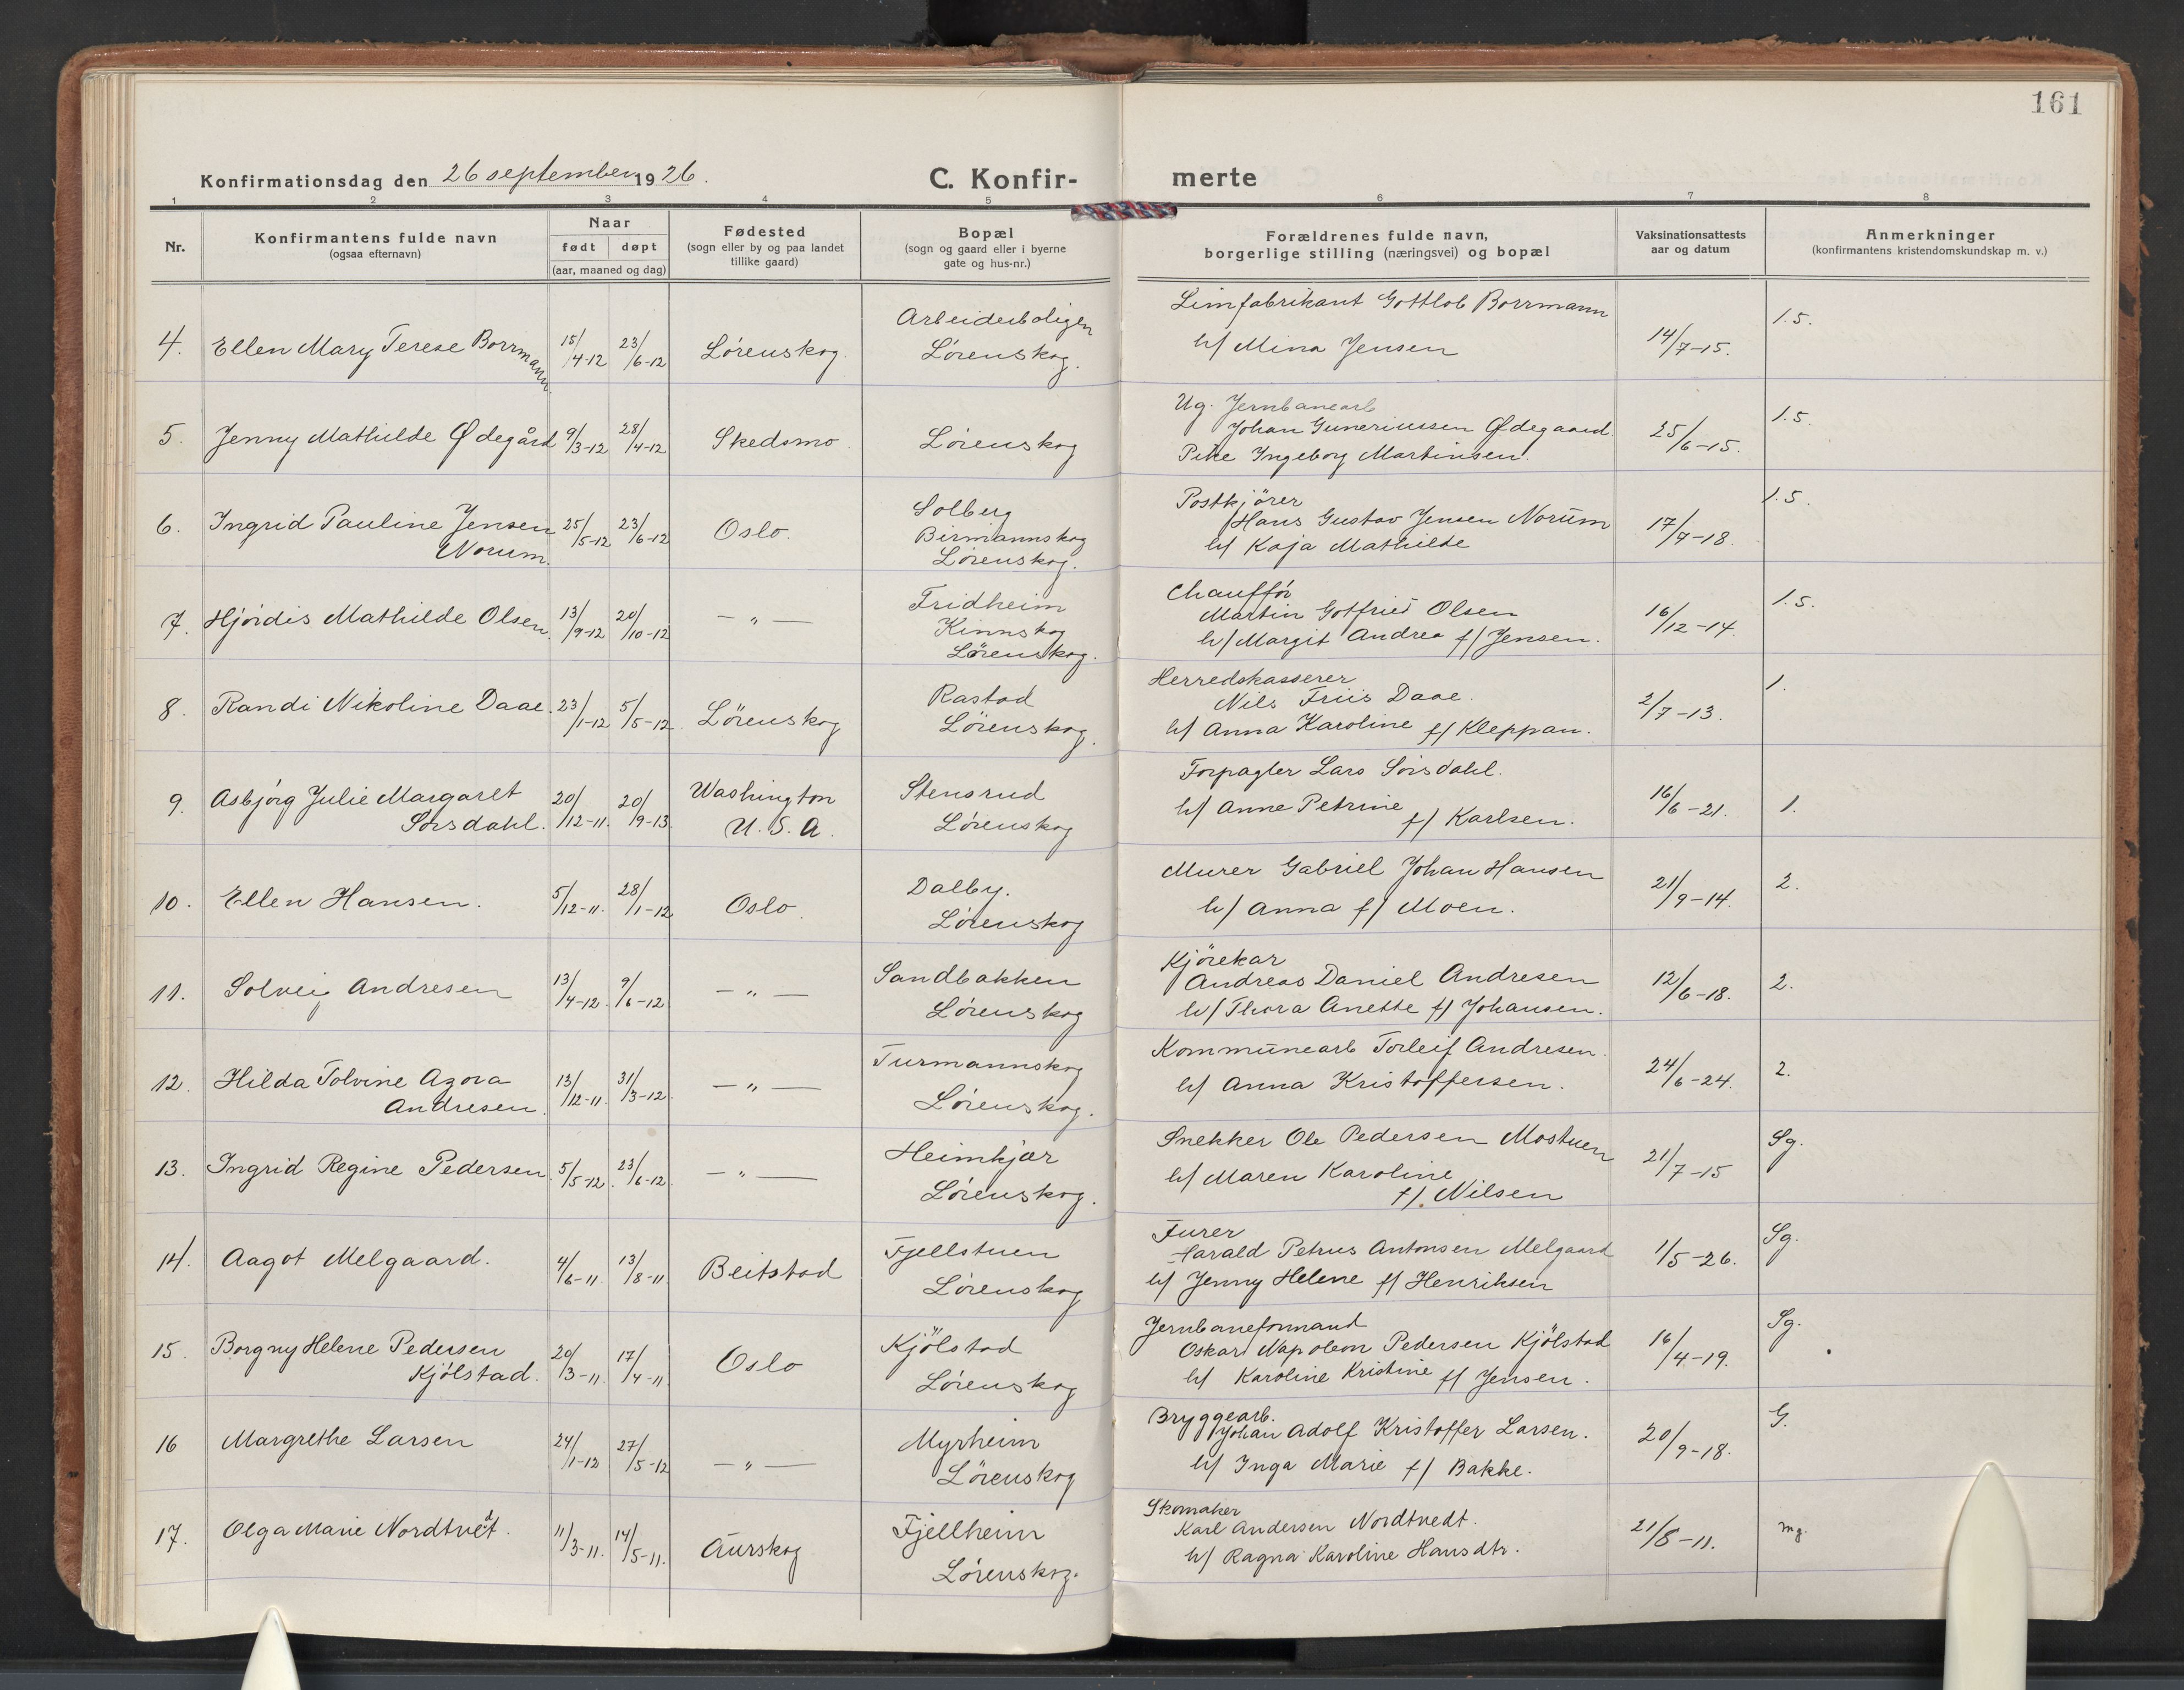 161
Konfirmationsdag den 26 september 1926.
C. Konfir-
merte
1 2 3 4 5 6 7 8
Nr.
Konfirmantens fulde navn
(ogsaa efternavn)
Naar
født døpt
(aar, maaned og dag)
Fødested
(sogn eller by og paa landet
tillike gaard)
Bopæl
(sogn og gaard eller i byerne
gate og hus-nr.)
Forældrenes fulde navn,
borgerlige stilling (næringsvei) og bopæl
Vaksinationsattests
aar og datum
Anmerkninger
(konfirmantens kristendomskundskap m. v.)
4. Ellen Mary Terese Borrmann. 15/4-12 23/6-12 Lörenskog.
Arbeiderboligen
Lörenskog.
Limfabrikant Gottlob Borrmann
h/ Mina Jensen
14/7-15. 1.5.
5. Jenny Mathilde Ødegård 9/3-12 28/4-12 Skedsmo. Lörenskog
Ug. Jernbanearb
Johan Guneriussen Ødegaard.
Pike Ingeborg Martinsen.
25/6-15. 1.5.
6. Ingrid Pauline Jensen
Norum. 25/5-12 23/6-12 Oslo.
Solberg
Birmannskog
Lörenskog.
Postkjörer
Hans Gustav Jensen Norum
h/ Kaja Mathilde
17/7-18. 1.5.
7. Hjördis Mathilde Olsen. 13/9-12 20/10-12 — „ —
Fridheim
Kinnskog
Lörenskog.
Chaufför
Martin Gotfried Olsen
h/ Margit Andrea f/ Jensen.
16/12-14. 1.5.
8. Randi Nikoline Daae. 23/1-12 5/5-12 Lörenskog
Rastad
Lörenskog.
Herredskasserer
Nils Friis Daae.
h/ Anna Karoline f/ Kleppan.
2/7-13. 1.
9. Asbjörg Julie Margaret
Sörsdahl. 20/12-11. 20/9-13.
Washington
U.S.A.
Stensrud
Lörenskog
Forpagter Lars Sörsdahl.
h/ Anne Petrine
f/ Karlsen.
16/6-21. 1.
10. Ellen Hansen. 5/12-11. 28/1-12 Oslo.
Dalby.
Lörenskog
Murer Gabriel Johan Hansen
h/ Anna f/ Moen.
21/9-14. 2.
11. Solveig Andresen 13/4-12. 9/6-12 — „ —
Sandbakken
Lörenskog
Kjörekar
Andreas Daniel Andresen
h/ Thora Anette f/ Johansen.
12/6-18. 2.
12. Hilda Tolvine Agora
Andresen. 13/12-11. 31/3-12. — „ —
Turmannskog
Lörenskog.
Kommunearb Torleif Andresen.
h/ Anna Kristoffersen.
24/6-24. 2.
13. Ingrid Regine Pedersen. 5/5-12. 23/6-12. — „ —
Heimkjær
Lörenskog.
Snekker Ole Pedersen Mostuen
h/ Maren Karoline
f/ Nilsen
21/7-15 Sg.
14. Aagot Melgaard. 4/6-11. 13/8-11 Beitstad
Fjellstuen
Lörenskog
Furer
Harald Petrus Antonsen Melgaard
h/ Jenny Helene f/ Henriksen
1/5-26. Sg.
15. Borgny Helene Pedersen
Kjölstad. 20/3-11. 17/4-11. Oslo
Kjölstad
Lörenskog
Jernbaneformand
Oskar Napoleon Pedersen Kjölstad
h/ Karoline Kristine f/ Jensen.
16/4-19. Sg.
16 Margrethe Larsen 24/1-12 27/5-12 — „ —
Myrheim
Lörenskog
Bryggearb.
Johan Adolf Kristoffer Larsen.
h/ Inga Marie f/ Bakke.
20/9-18. G.
17. Olga Marie Nordtvedt. 11/3-11. 14/5-11. Aurskog
Fjellheim
Lörenskog.
Skomaker
Karl Andersen Nordtvedt.
h/ Ragna Karoline Hansdtr.
21/8-11. mg.